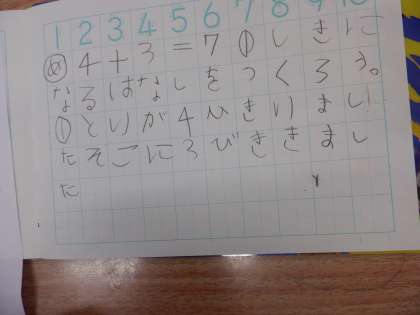 1 2 3 4 5 6 7 8 9 10
⓪ 4+3=7のしきに
なるはなしをつくろう。
①とりが4ひきいまし
たそこに3びききまし
た